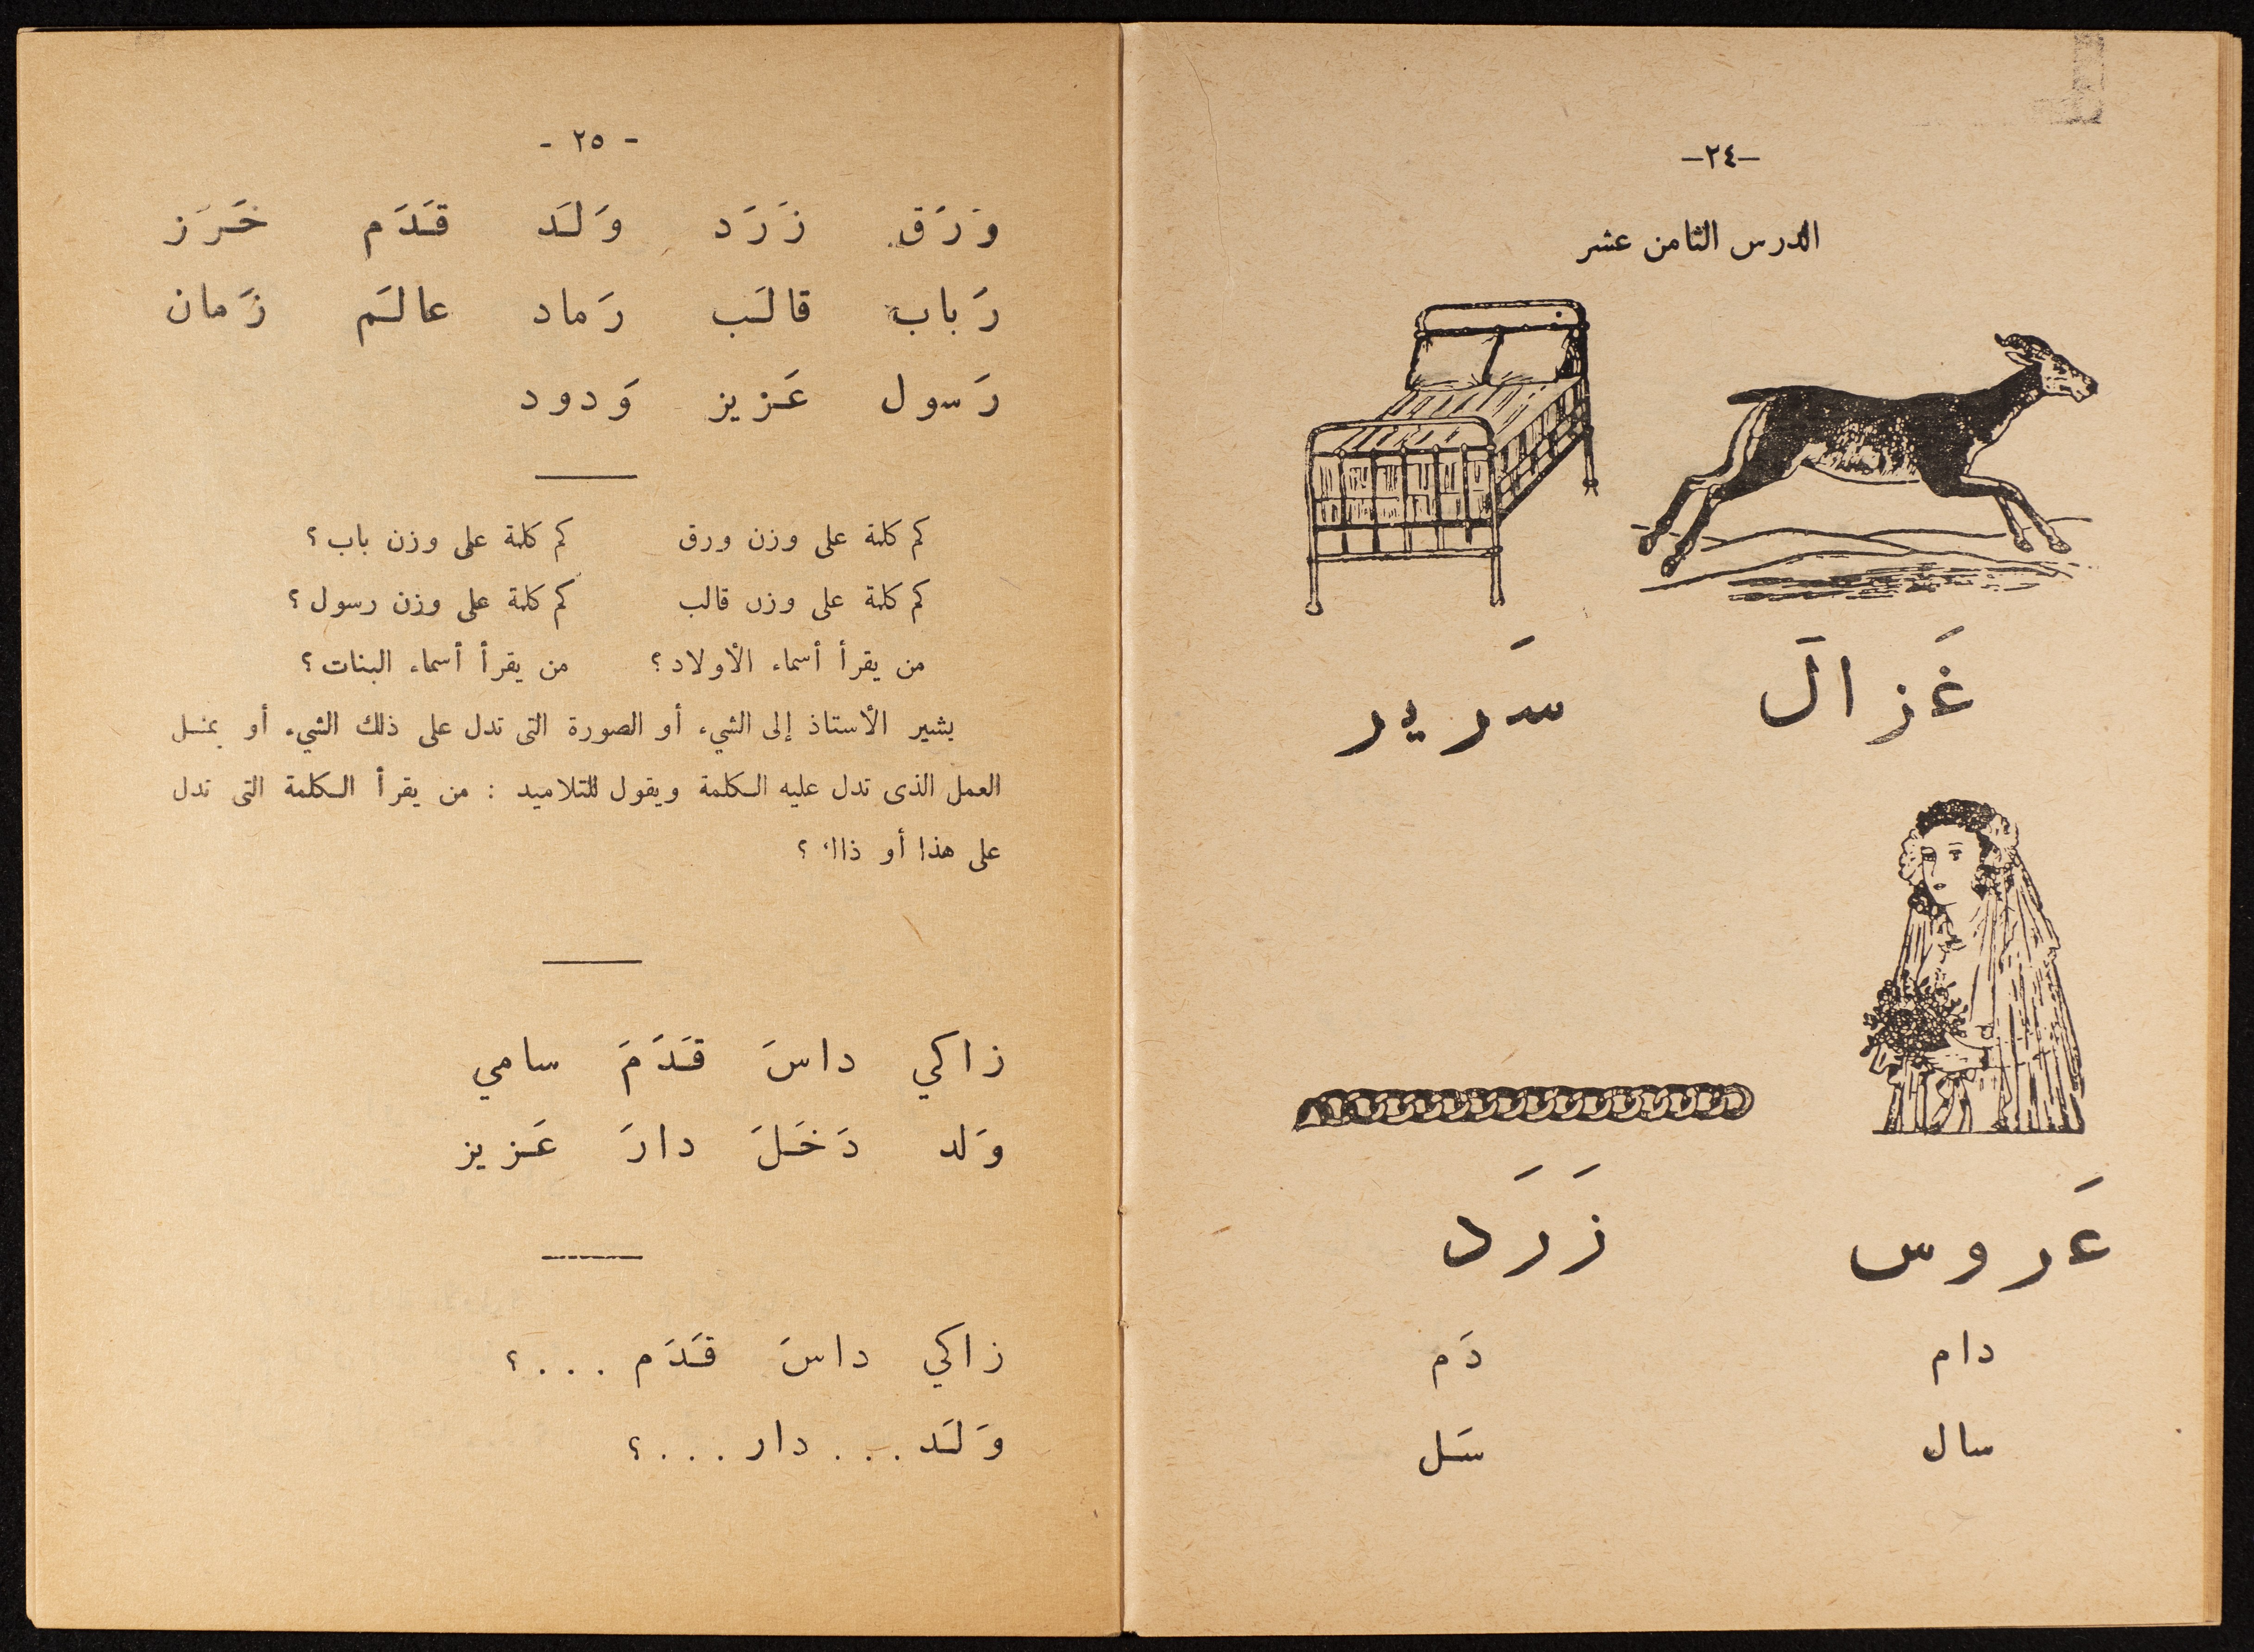 -٢٤-
الدرس الثامن عشر
غَزالَ سَرير
عَروس زَرَد
دام دَم
سال سَل
- ٢٥ -
وَرَق زَرَد وَلَد قَدَم خَرَز
رَباب قالَب رَماد عالَم زَمان
رَسول عَزيز وَدود
كم كلمة على وزن ورق كم كلمة على وزن باب ؟
كم كلمة على وزن قالب كم كلمة على وزن رسول ؟
من يقرأ أسماء الأولاد ؟ من يقرأ أسماء البنات ؟
يشير الأستاذ إلى الشيء أو الصورة التى تدل على ذلك الشيء أو يمثل
العمل الذى تدل عليه الكلمة ويقول للتلاميد : من يقرأ الكلمة التى تدل
على هذا أو ذاك ؟
زاكي داسَ قَدَمَ سامي
وَلد دَخَلَ دارَ عَزيز
زاكي داسَ قَدَم . . . ؟
وَلَد . . . دار . . . ؟